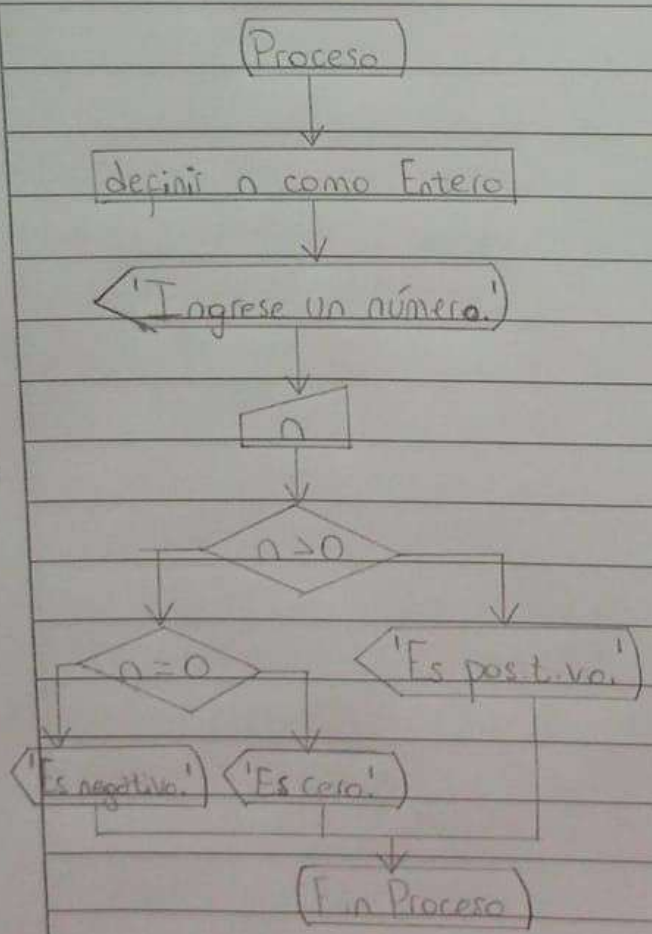 Proceso
definir n como Entero
'Ingrese un número.'
n
n>0
n=0
'Es positivo.'
'Es negativo.' 'Es cero.'
Fin Proceso